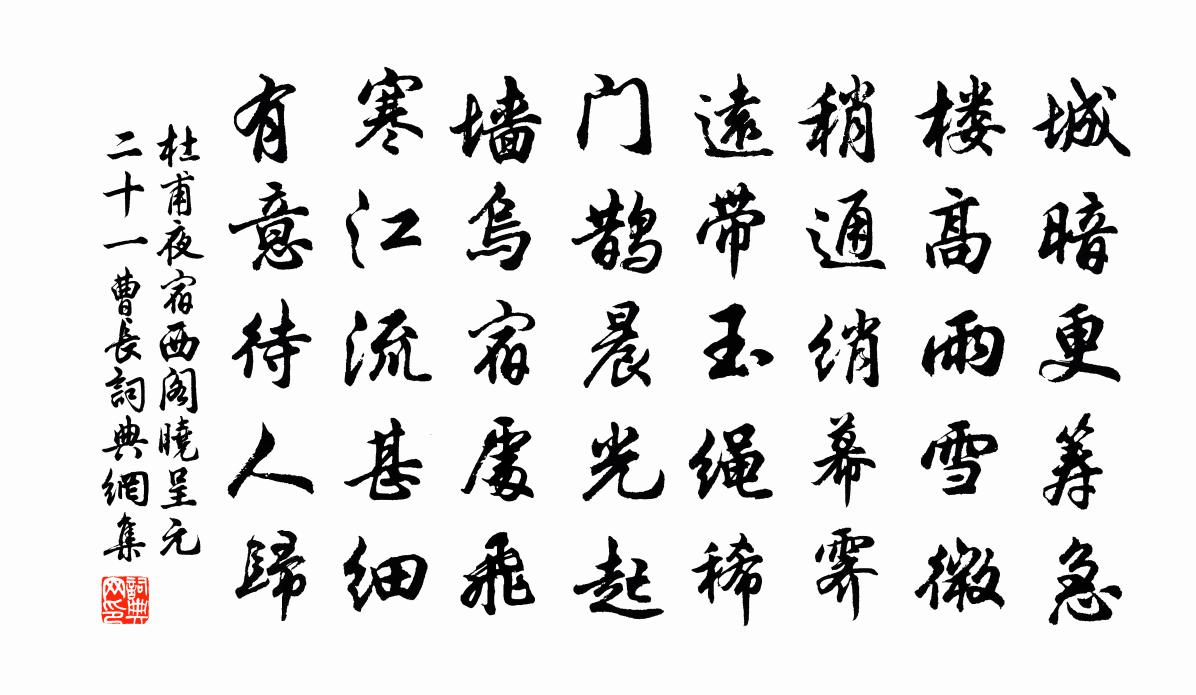 城暗更筹急
楼高雨雪微
稍通绡幕霁
遠带玉绳稀
门鹊晨光起
墙烏宿處飛
寒江流甚细
有意待人歸
杜甫夜宿西阁曉呈元
二十一曹長詞典網集
詞典网印